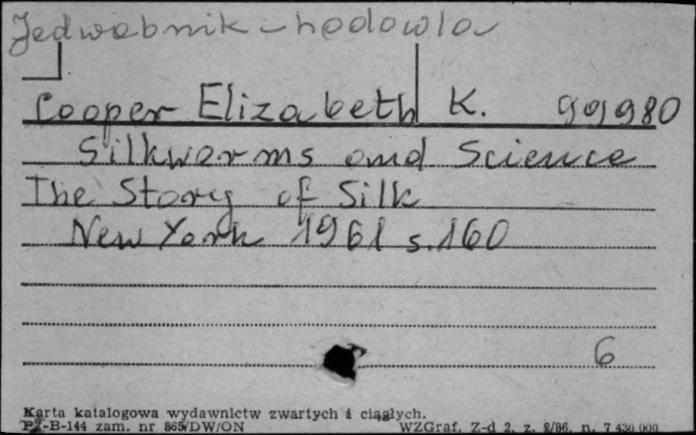 Jedwabnik - hodowla
Cooper Elizabeth K. 991980
Silkworms and Science
The Story of Silk
New York 1961 s. 160
6
Karta katalogowa wydawnictw zwartych i ciągłych.
Pż-B-144 zam. nr 865/DW/ON WZGraf. Z-d 2, z. 2/86, n. 7 430 000